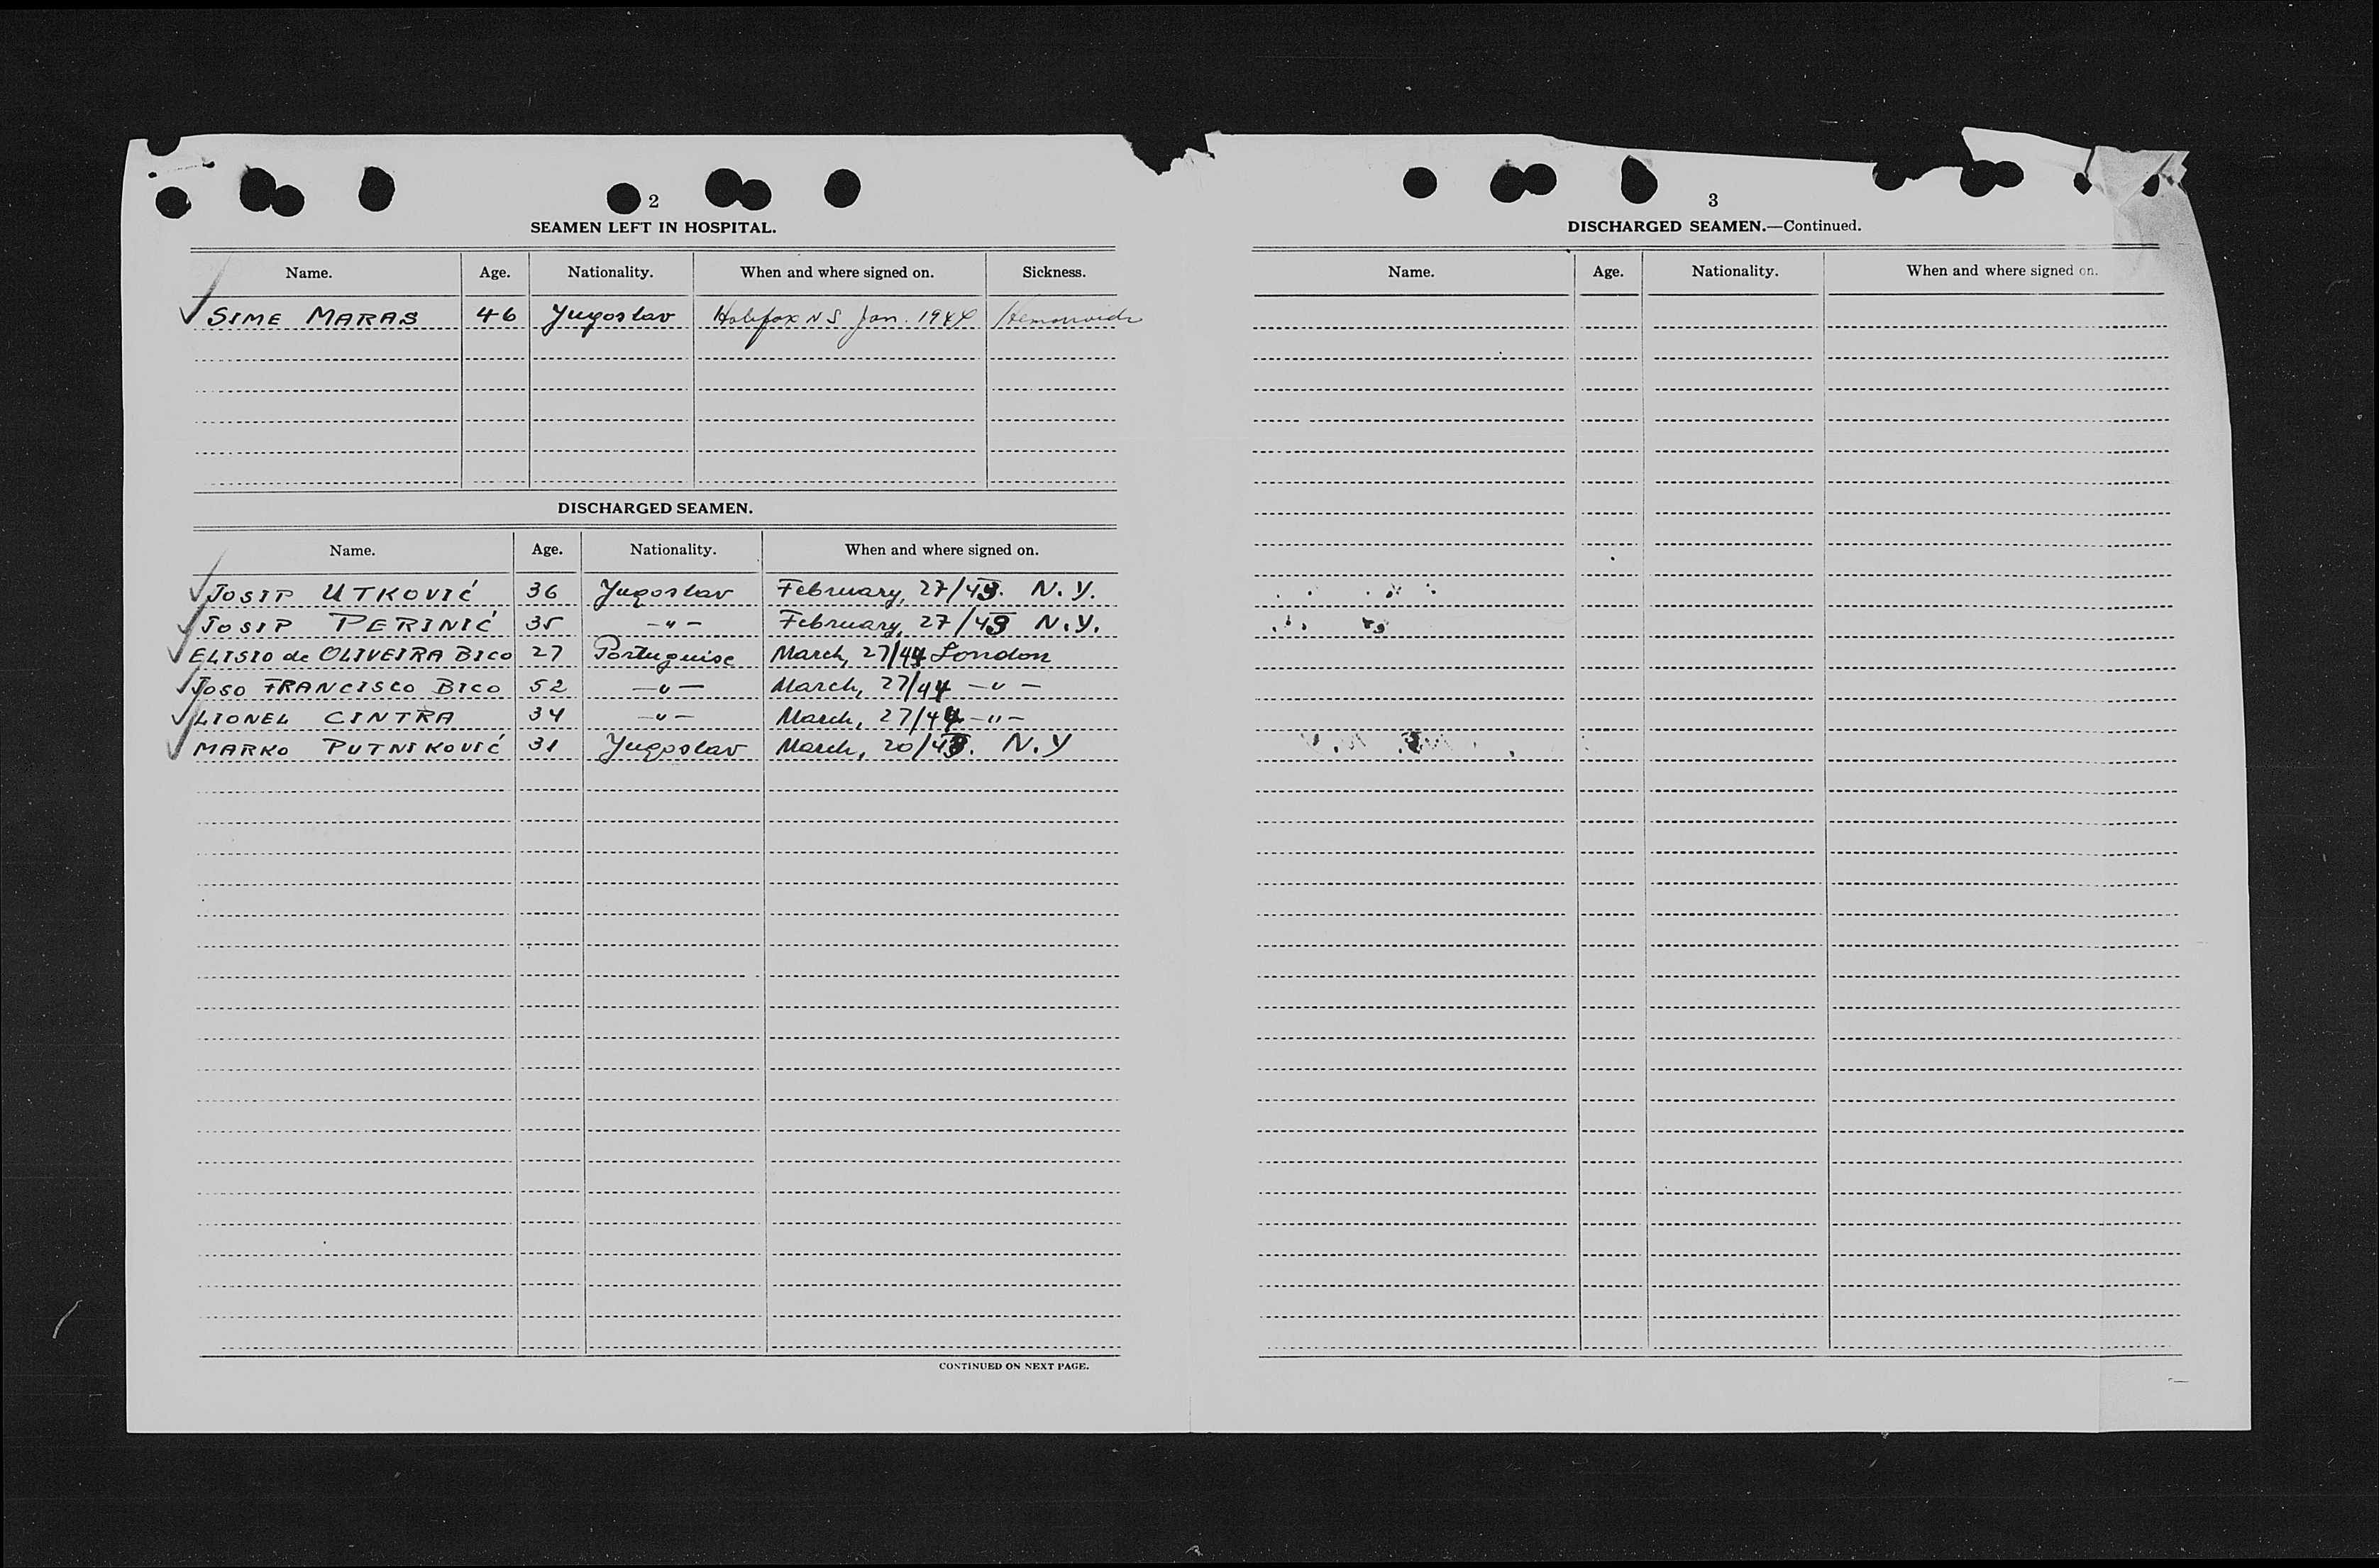 2
SEAMEN LEFT IN HOSPITAL.
Name. Age. Nationality. When and where signed on. Sickness.
SIME MARAS 46 Yugoslav Halifax N S Jan. 1944 Hemorroids
DISCHARGED SEAMEN.
Name. Age. Nationality. When and where signed on.
JOSIP UTKOVIĆ 36 Yugoslav February, 27/43. N.Y.
JOSIP PERINIĆ 35 —〃— February, 27/43 N.Y.
ELISIO de OLIVEIRA BICO 27 Portuguise March, 27/44 London
JOSO FRANCISCO BICO 52 —〃— March, 27/44 —〃—
LIONEL CINTRA 34 —〃— March, 27/44 —〃—
MARKO PUTNIKOVIĆ 31 Yugoslav March, 20/43. N.Y
CONTINUED ON NEXT PAGE.
3
DISCHARGED SEAMEN.—Continued.
Name. Age. Nationality. When and where signed on.